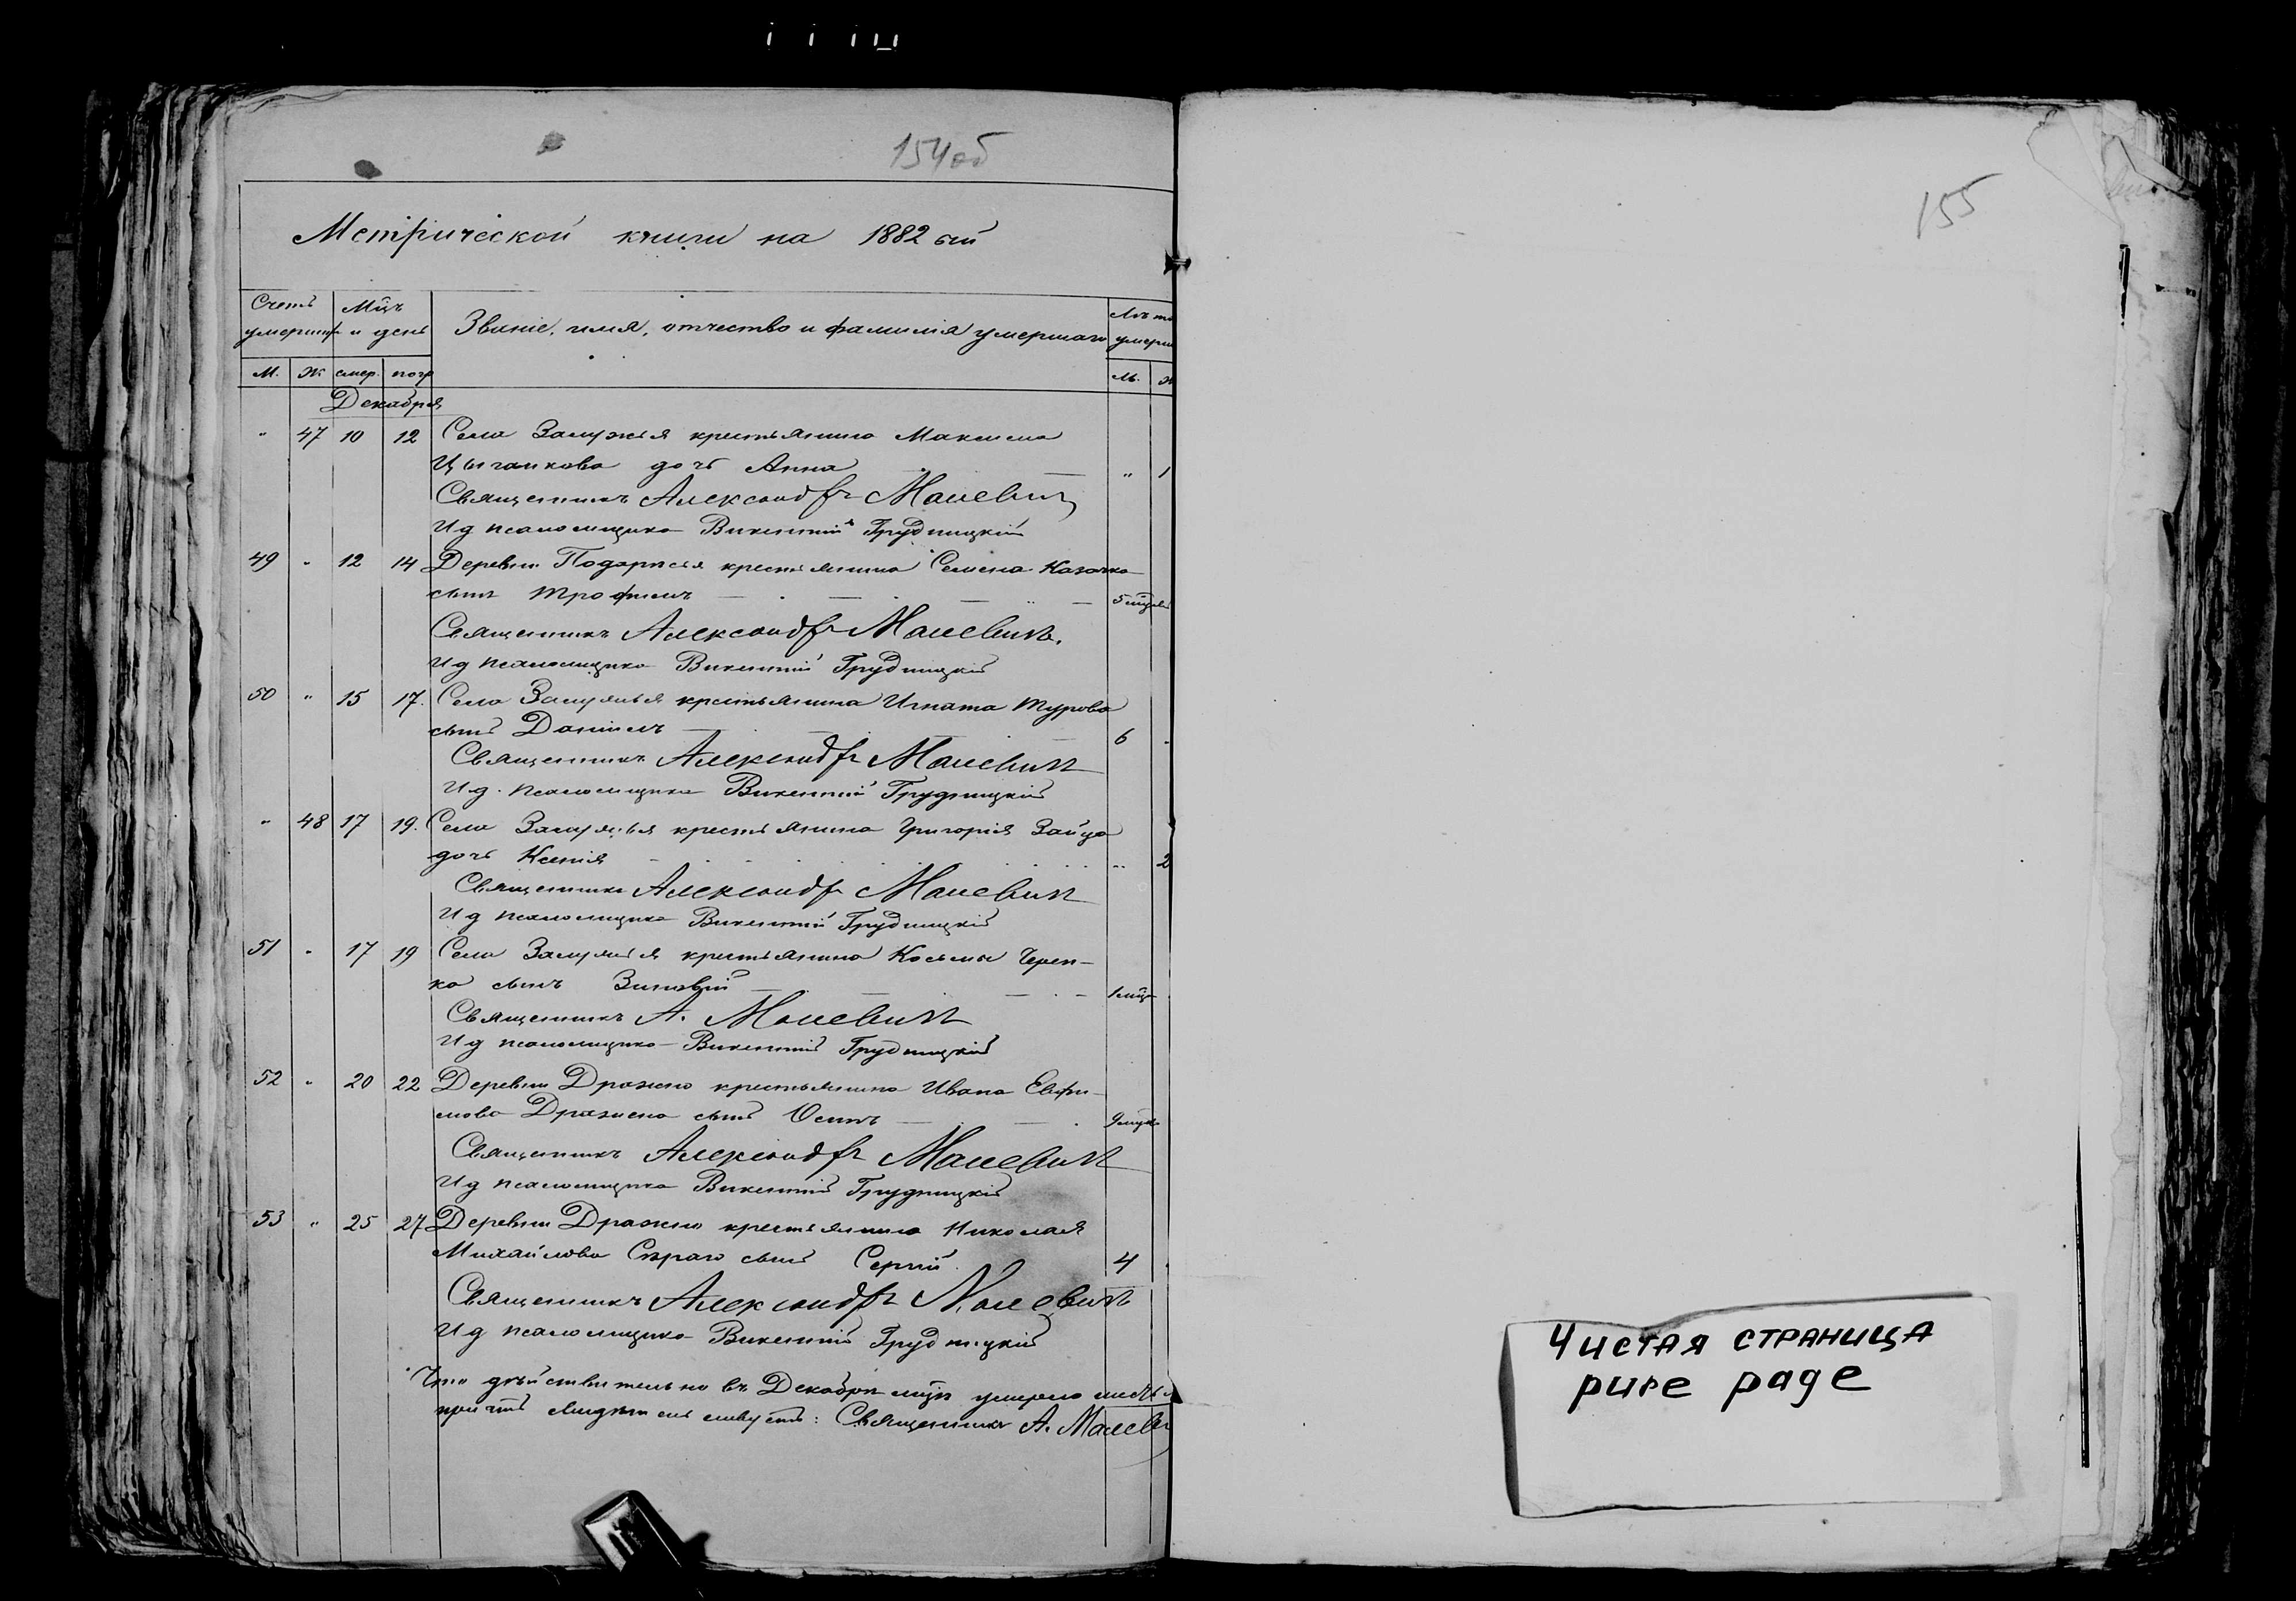 154 об
Метрической книги на 1882 ый
Счетъ умерших
Мц̃ъ и день
Званіе, имя, отчество и фамилія умершаго
Лѣта умерш
М. Ж. смер. погр
М. Ж
Декабря
" 47 10 12 Села Залужья крестьянина Максима
Цыганкова дочь Анна — " 1
Священникъ Александръ Маневичъ
И д псаломщика Викентій Грудницкій
49 " 12 14 Деревни крестьянина Семена Казачка
сынъ Трофимъ — 5
Священникъ Александръ Маневичъ.
И д псаломщика Викентій Грудницкій
50 " 15 17. Села Залужья крестьянина Игната Турова
сынъ Даніилъ — 6
Священникъ Александръ Маневичъ
И.д. псаломщика Викентій Грудницкій
" 48 17 19. Села Залужья крестьянина Григорія Зайца
дочь Ксенія — " 2
Священникъ Александръ Маневичъ
И д псаломщика Викентій Грудницкій
51 " 17 19 Села Залужья крестьянина Косьмы Череп-
ка сынъ Зиновій — 1 мц̃а
Священникъ А. Маневичъ
И д псаломщика Викентій Грудницкій
52 " 20 22 Деревни Дражно крестьянина Ивана Евфи-
мова Дражена сынъ Осипъ — 9
Священникъ Александръ Маневичъ
И д псаломщика Викентій Грудницкій
53 " 25 27 Деревни Дражно крестьянина Николая
Михайлова Сѣраго сынъ Сергій. 4
Священникъ Александръ Маневичъ
И д псаломщика Викентій Грудницкій
Что дѣйствительно въ Декабрѣ мц̃ѣ умерло
причтъ: Священникъ А. Маневи
155
Чистая страница
pure page